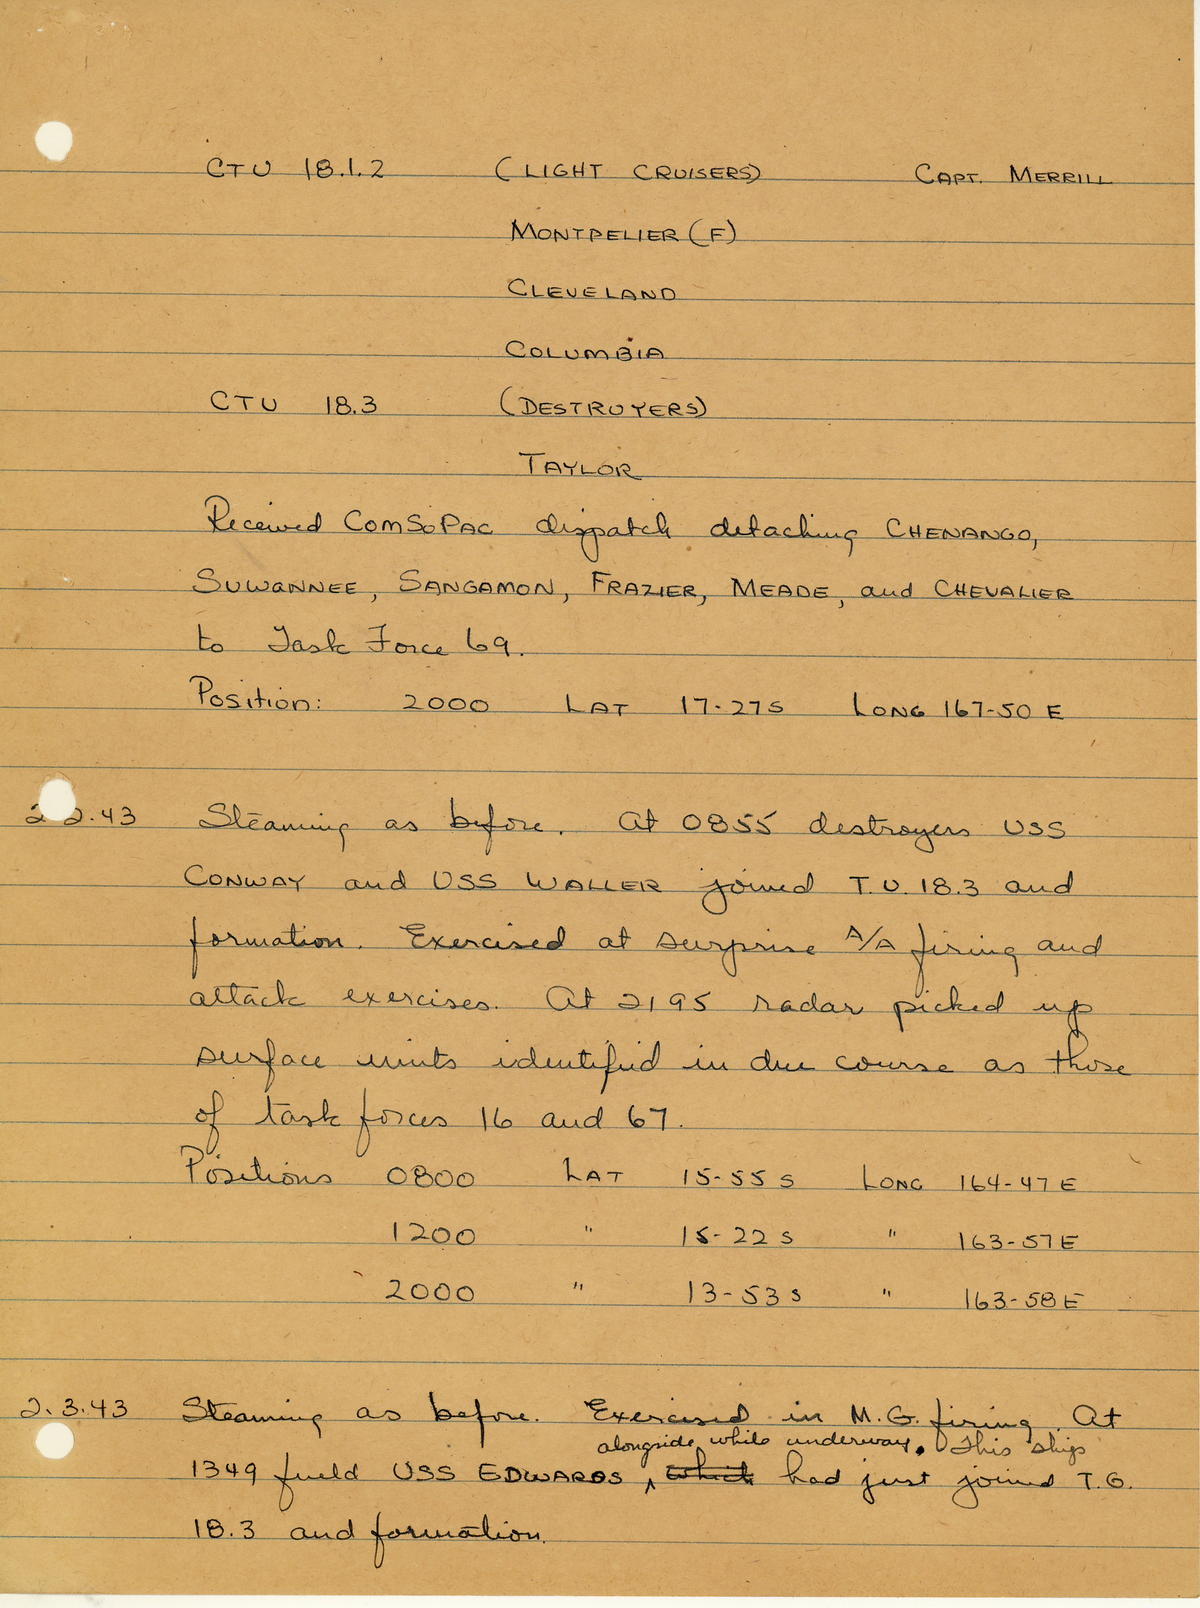 CTU 18.1.2 (LIGHT CRUISERS) CAPT. MERRILL
MONTPELIER (F)
CLEVELAND
COLUMBIA
CTU 18.3 (DESTROYERS)
TAYLOR
Received COMSOPAC dispatch detaching CHENANGO,
SUWANNEE, SANGAMON, FRAZIER, MEADE, and CHEVALIER
to Task Force 69.
Position: 2000 LAT 17-27 S LONG 167-50 E
2.2.43 Steaming as before. At 0855 destroyers USS
CONWAY and USS WALLER joined T.U. 18.3 and
formation. Exercised at surprise A/A firing and
attack exercises. At 2195 radar picked up
surface units identified in due course as those
of task forces 16 and 67.
Positions 0800 LAT 15-55 S LONG 164-47 E
1200 " 15-22 S " 163-57 E
2000 " 13-53 S " 163-58 E
2.3.43 Steaming as before. Exercised in M.G. firing. At
alongside while underway. This ship
1349 fueld USS EDWARDS, ^ which had just joined T.G.
18.3 and formation.